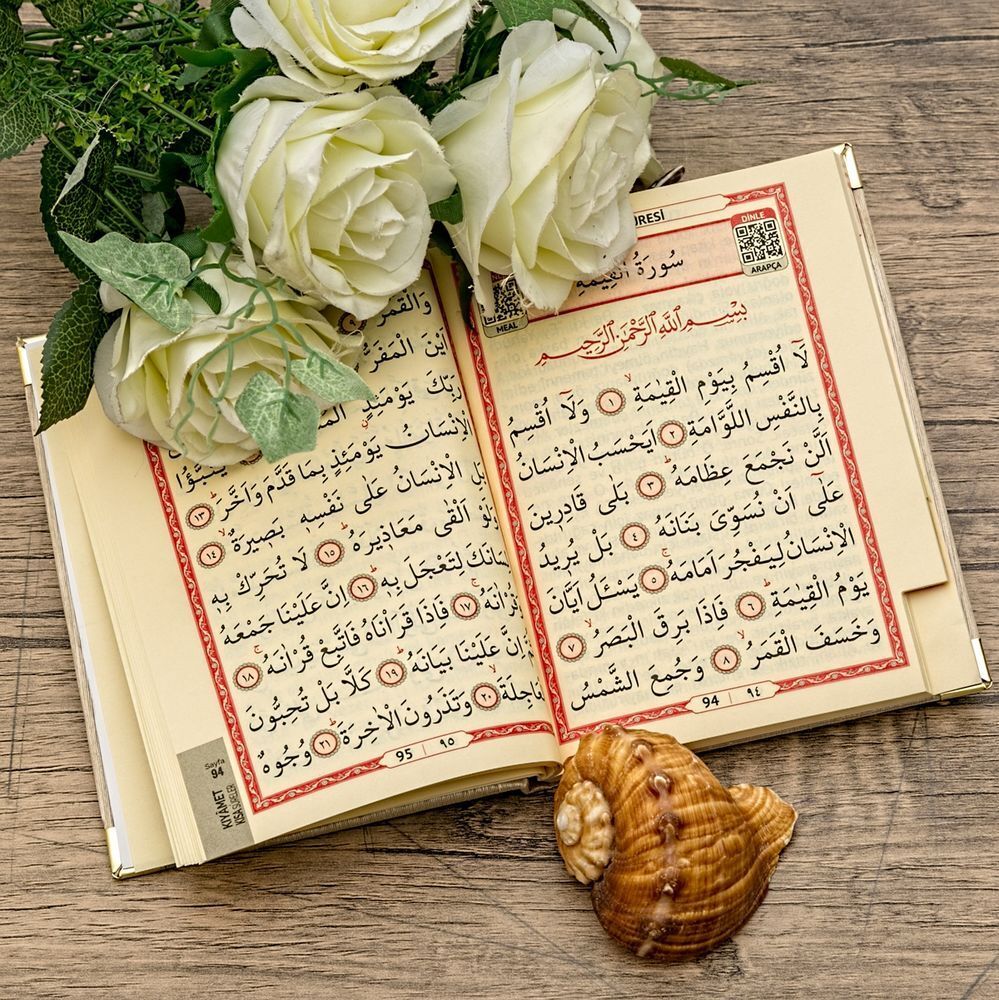 RESİ
DİNLE
ARAPÇA
MEAL
سُورَةُ الْقِيٰمَةِ
بِسْمِ اللّٰهِ الرَّحْمٰنِ الرَّحِيمِ
لَٓا اُقْسِمُ بِيَوْمِ الْقِيٰمَةِۙ ﴿١﴾ وَلَٓا اُقْسِمُ
بِالنَّفْسِ اللَّوَّامَةِ ﴿٢﴾ اَيَحْسَبُ الْاِنْسَانُ
اَلَّنْ نَجْمَعَ عِظَامَهُۜ ﴿٣﴾ بَلٰى قَادِرِينَ
عَلٰٓى اَنْ نُسَوِّىَ بَنَانَهُ ﴿٤﴾ بَلْ يُرِيدُ
الْاِنْسَانُ لِيَفْجُرَ اَمَامَهُۚ ﴿٥﴾ يَسْـَٔلُ اَيَّانَ
يَوْمُ الْقِيٰمَةِۜ ﴿٦﴾ فَاِذَا بَرِقَ الْبَصَرُۙ ﴿٧﴾
وَخَسَفَ الْقَمَرُۙ ﴿٨﴾ وَجُمِعَ الشَّمْسُ
94 | ٩٤
وَالْقَمَرُ
اَيْنَ الْمَفَرُّ
رَبِّكَ يَوْمَئِذٍ
الْاِنْسَانُ يَوْمَئِذٍ بِمَا قَدَّمَ وَاَخَّرَۜ ﴿١٣﴾
بَلِ الْاِنْسَانُ عَلٰى نَفْسِهٖ بَصٖيرَةٌۙ ﴿١٤﴾
وَلَوْ اَلْقٰى مَعَاذٖيرَهُۜ ﴿١٥﴾ لَا تُحَرِّكْ بِهٖ
لِتَعْجَلَ بِهٖۜ ﴿١٦﴾ اِنَّ عَلَيْنَا جَمْعَهُ
﴿١٧﴾ فَاِذَا قَرَاْنَاهُ فَاتَّبِعْ قُرْاٰنَهُۚ ﴿١٨﴾
اِنَّ عَلَيْنَا بَيَانَهُۜ ﴿١٩﴾ كَلَّا بَلْ تُحِبُّونَ
﴿٢٠﴾ وَتَذَرُونَ الْاٰخِرَةَۜ ﴿٢١﴾ وُجُوهٌ
95 | ٩٥
Sayfa
94
KIYÂMET
KISA SURELER